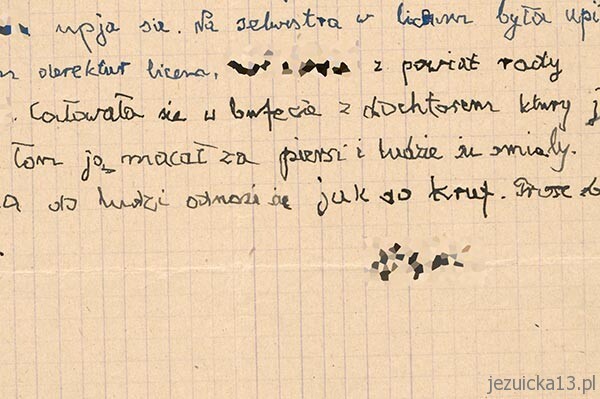 upja sie. Na selwistra w liceum była upi
m derektur licena, z powiat rady
. Całowała sie w bufecie z dochtorem ktury j
tom ją macał za piersi i ludzie sie smialy.
a do ludzi odnosi się jak do kruf. Prose
jezuicka13.pl